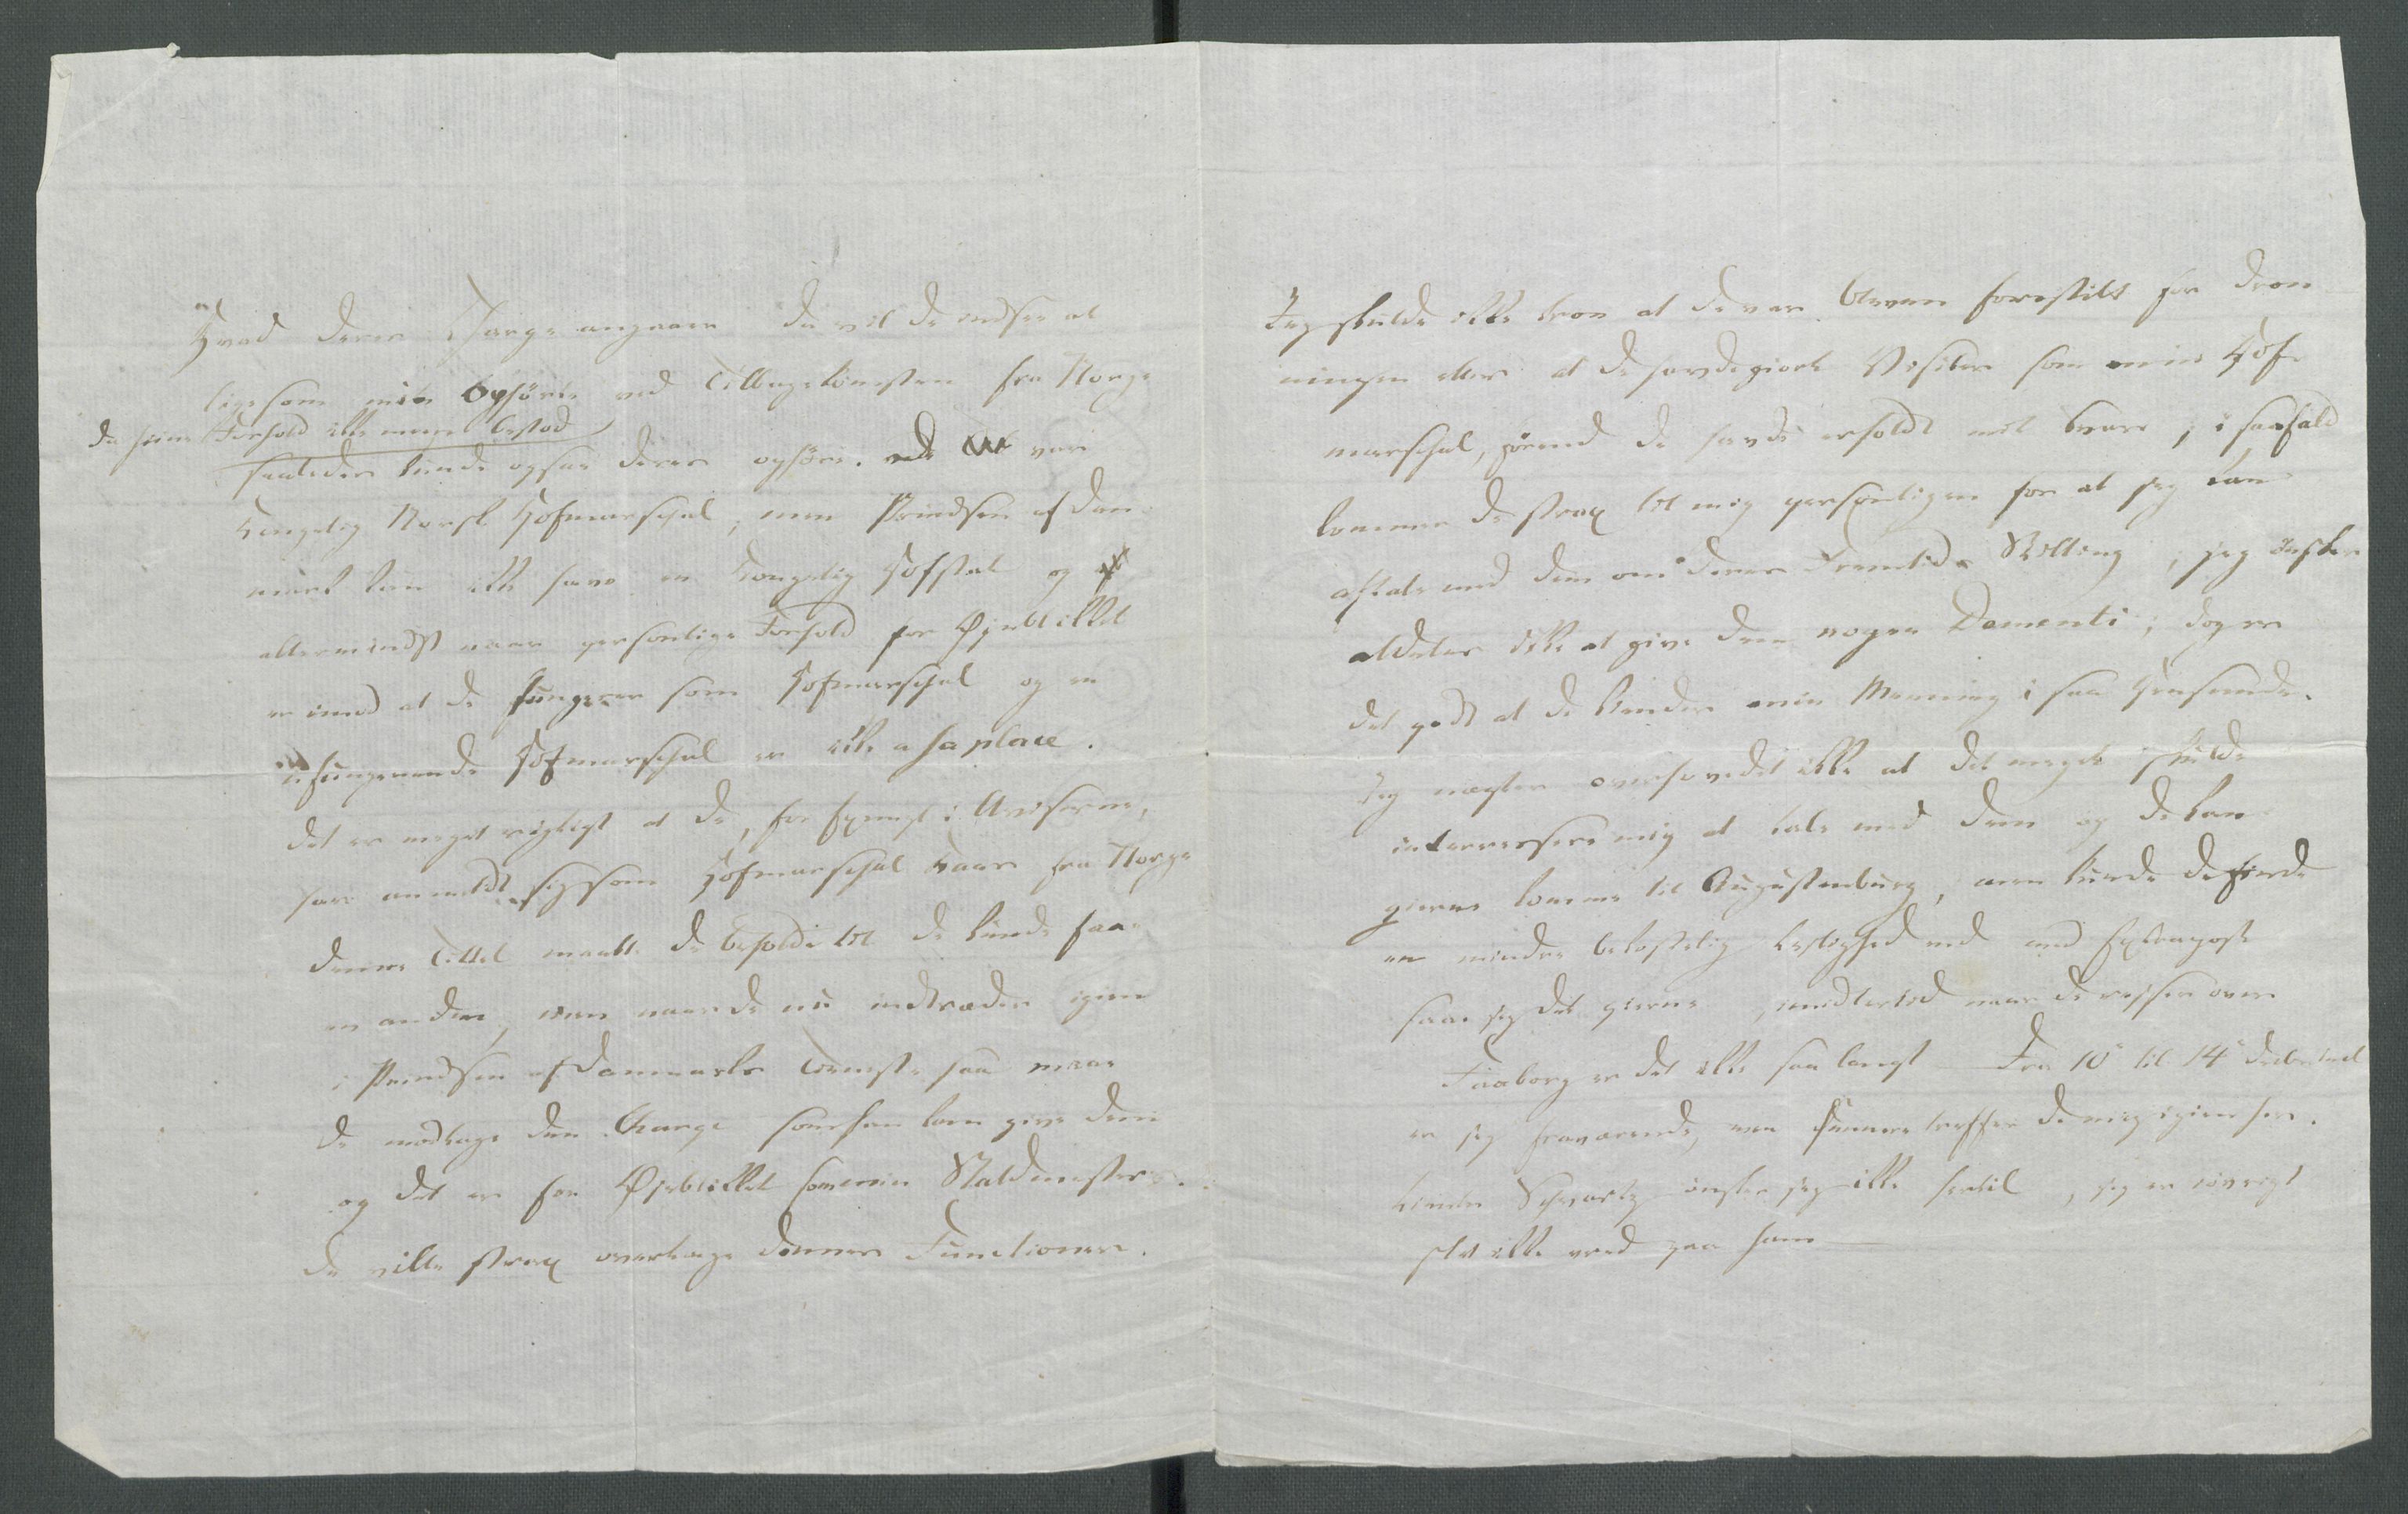 Hvad Deres Charge angaaer da vil De indsee at
ligesom min Ophörte ved Tilbagekomsten fra Norge
da hiine Forhold ikke meere bestod
saaledes kunde ogsaa Deres ophöre. De var
Kongelig Norsk Hofmarschal, men Prindsen af Dan-
mark kan ikke have en Kongelig Hofstat og
allermindst vaar personlige Forhold for Øyeblikket
er imod at De fungerer som Hofmarschal og en
ufungerende Hofmarschal er ikke a sa place.
Det er meget rigtigt at De, for Exempl i Aviserne,
har anmeldt sig som Hofmarschal Kaas fra Norge
denne Tittel maatte De beholde til De kunde faae
en anden, men naar De nu indtræder igien
i Prindsen af Danmarks Tieneste saa maae
De modtage den Charge som han kan give Dem
og det er for Øyeblikket som min Staldmester.
De ville strax overtage dennes Functioner.
Jeg skulde ikke troe at De var bleven forestillt for Dron
ningen eller at De havde giort Visiter som min Hof-
marschal, förend De havde erholdt mit Svar; i saafald
kommer De strax til mig personligen for at jeg kan
aftale med Dem om Deres Fremtids Stilling, jeg önsker
aldeles ikke at give Dem nogen Dementi; dog er
det godt at De kiender min Mening i saa Henseende.
Jeg nægter overhovedet ikke at det meget skulde
interressere mig at tale med Dem og De kan
gierne komme til Augustenburg, men kunde De finde
en mindre bekostelig Leilighed end med Extrapost
saae jeg det gierne, imidlertid naar De reiser over
Faaborg er det ikke saa langt — Fra 10 til 14
er jeg fraværende, men senere treffer De mig igien her.
Schwartz önsker jeg ikke hertil, jeg er iövrigt
slet ikke vred paa ham —